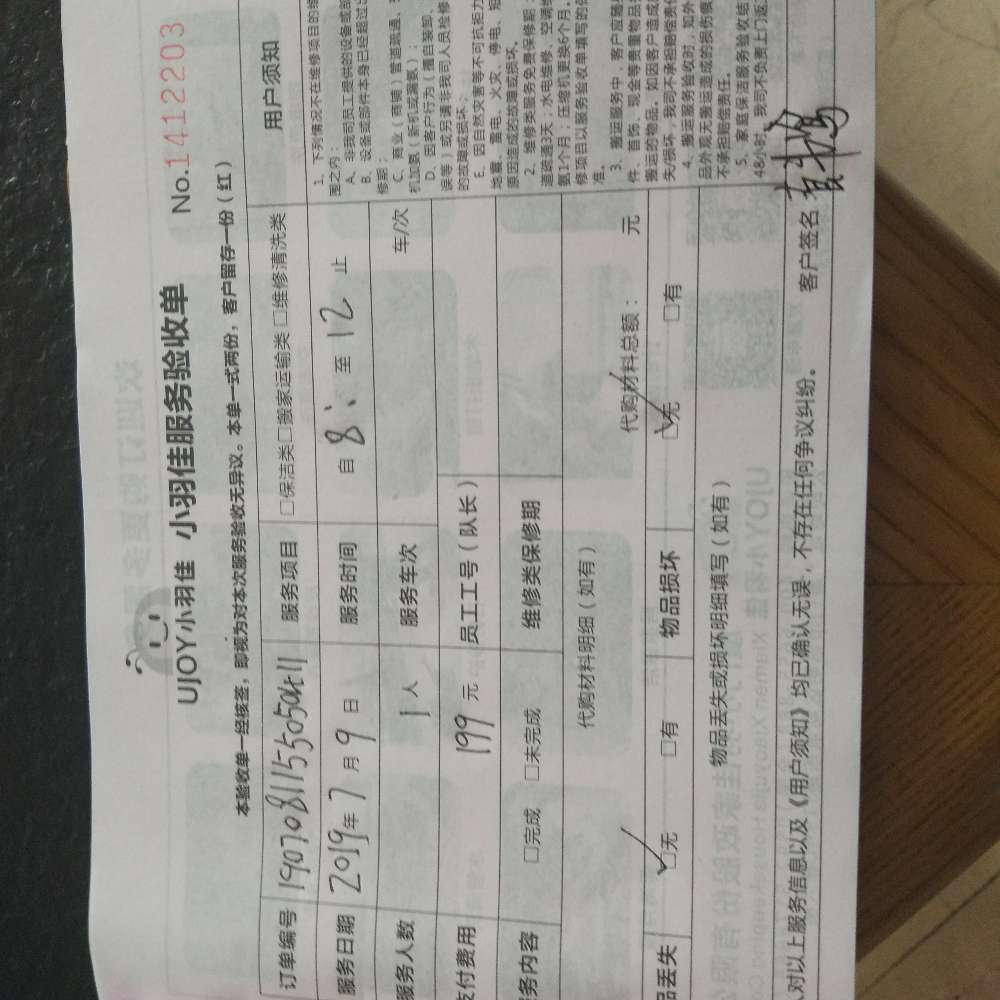 UJOY小羽佳 小羽佳服务验收单
No.1412203
本验收单一经核签，即视为对本次服务验收无异议。本单一式两份，客户留存一份（红）
订单编号 19070811550504811 服务项目 □保洁类□搬家运输类 □维修清洗类
服务日期 2019年7月9日 服务时间 自 8: 至 12 止
服务人数 1 人 服务车次 车/次
支付费用 199 元 员工工号（队长）
务内容 □完成 □未完成 维修类保修期
代购材料明细（如有） 代购材料总额： 元
品丢失 □无 □有 物品损坏 □无 □有
物品丢失或损坏明细填写（如有）
人对以上服务信息以及《用户须知》均已确认无误，不存在任何争议纠纷。 客户签名
用户须知
1、下列情况不在维修项目的维
围之内：
A、非我司员工提供的设备或部
B、设备或部件本身已经超过
修距；
C、商业（商铺）管道疏通、
机加氨（新机或漏氨）；
D、因客户行为（擅自装卸、
误等）或另请非我司人员检修
的故障或损坏；
E、因自然灾害等不可抗拒力
地震、雷电、火灾、停电、
原因造成的故障或损坏。
2、维修类服务免费保修期：
道疏通3天；水电维修、空调
氨1个月；压缩机更换6个月。
修项目以服务验收单填写的
准。
3、搬运服务中，客户应随
件、首饰、现金等贵重物品
搬运的物品，如因客户造成
失/损坏，我司不承担赔偿责
4、搬运服务验收时，如外
品外观无搬运造成的损伤痕
不承担赔偿责任。
5、家庭保洁服务验收结
48小时，我司不负责上门返